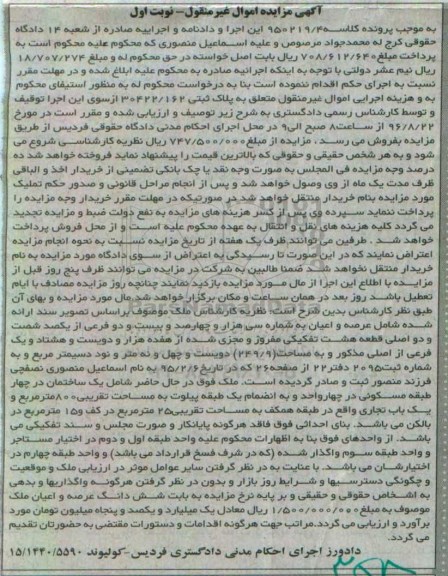 آگهی مزایده اموال غیرمنقول- نوبت اول
به موجب پرونده کلاسه ۹۵۰۲۱۹/۴ این اجرا و دادنامه و اجراییه صادره از شعبه ۱۴ دادگاه
حقوقی کرج له محمدجواد مرصوص و علیه اسماعیل منصوری که محکوم علیه محکوم است به
پرداخت مبلغ ۷۰۸/۶۱۲/۶۴۰ ریال بابت اصل خواسته در حق محکوم له و مبلغ ۱۸/۷۰۷/۲۷۴
ریال نیم عشر دولتی با توجه به اینکه اجرائیه صادره به محکوم علیه ابلاغ شده و در مهلت مقرر
نسبت به اجرای حکم اقدام ننموده است بنا به درخواست محکوم له به منظور استیفای محکوم
به و هزینه اجرایی اموال غیرمنقول متعلق به پلاک ثبتی ۳۰۴۲۲/۱۶۲ ازسوی این اجرا توقیف
و توسط کارشناس رسمی دادگستری به شرح زیر توصیف و ارزیابی شده و مقرر است در مورخ
۹۶/۸/۲۲ از ساعت ۸ صبح الی ۹ در محل اجرای احکام مدنی دادگاه حقوقی فردیس از طریق
مزایده بفروش می رسد. مزایده از مبلغ ۷۴۷/۵۰۰/۰۰۰ ریال نظریه کارشناسی شروع می
شود و به هر شخص حقیقی و حقوقی که بالاترین قیمت را پیشنهاد نماید فروخته خواهد شد ده
درصد وجه مزایده فی المجلس به صورت وجه نقد یا چک بانکی تضمینی از خریدار اخذ و الباقی
ظرف مدت یک ماه از وی وصول خواهد شد و پس از انجام مراحل قانونی و صدور حکم تملیک
مورد مزایده بنام خریدار منتقل خواهد شد در صورتیکه در مهلت مقرر خریدار وجه مزایده را
پرداخت ننماید سپرده وی پس از کسر هزینه های مزایده به نفع دولت ضبط و مزایده تجدید
می گردد کلیه هزینه های نقل و انتقال به عهده محکوم علیه است و از محل فروش پرداخت
خواهد شد. طرفین می توانند ظرف یک هفته از تاریخ مزایده نسبت به نحوه انجام مزایده
اعتراض نمایند که در این صورت تا رسیدگی به اعتراض از سوی دادگاه مورد مزایده به نام
خریدار منتقل نخواهد شد. ضمنا طالبین به شرکت در مزایده می توانند ظرف پنج روز قبل از
مزایده با اطلاع این اجرا از مال مورد مزایده بازدید نمایند چنانچه روز مزایده مصادف با ایام
تعطیل باشد روز بعد در همان ساعت و مکان برگزار خواهد شد. مال مورد مزایده و بهای آن
طبق نظر کارشناس بدین شرح است: نظریه کارشناس ملک موصوف براساس تصویر سند ارائه
شده شامل عرصه و اعیان به شماره سی هزار و چهارصد و بیست و دو فرعی از یکصد شصت
و دو اصلی قطعه هشت تفکیکی مفروز و مجزی شده از هفده هزار و دویست و هشتاد و یک
فرعی از اصلی مذکور و به مساحت (۲۴۹/۹) دویست و چهل و نه متر و نود دسیمتر مربع و به
شماره ثبت ۲۰۹۵ دفتر ۲۲ از صفحه ۲۶ که در تاریخ ۹۵/۲/۶ به نام اسماعیل منصوری نصفجی
فرزند منصور ثبت و صادر گردیده است. ملک فوق در حال حاضر شامل یک ساختمان در چهار
طبقه مسکونی در چهارواحد و به انضمام یک طبقه پیلوت به مساحت تقریبی ۸۰۰ مترمربع و
یک باب تجاری واقع در طبقه همکف به مساحت تقریبی ۲۵ مترمربع در کف و ۱۵ مترمربع در
بالکن می باشد. بنای احداثی فوق فاقد هرگونه پایانکار و صورت مجلس و سند تفکیکی می
باشد. از واحدهای فوق بنا به اظهارات محکوم علیه واحد طبقه اول و دوم در اختیار مستاجر
و واحد طبقه سوم واگذار شده (که در شرف فسخ قرارداد می باشد) و واحد طبقه چهارم در
اختیارشان می باشد. با عنایت به در نظر گرفتن سایر عوامل موثر در ارزیابی ملک و موقعیت
و چگونگی دسترسیها و شرایط روز بازار و بدون در نظر گرفتن هرگونه واگذاریها و بدهی
به اشخاص حقوقی و حقیقی و بر پایه نرخ مزایده به بابت شش دانگ عرصه و اعیان ملک
موصوف به مبلغ ۱/۵۰۰/۰۰۰/۰۰۰ ریال معادل یک میلیارد و یکصد و پنجاه میلیون تومان مورد
برآورد و ارزیابی می گردد. مراتب جهت هرگونه اقدامات و دستورات مقتضی به حضورتان تقدیم
می گردد.
دادورز اجرای احکام مدنی دادگستری فردیس-کولیوند ۱۵/۱۴۴۰/۵۵۹۰